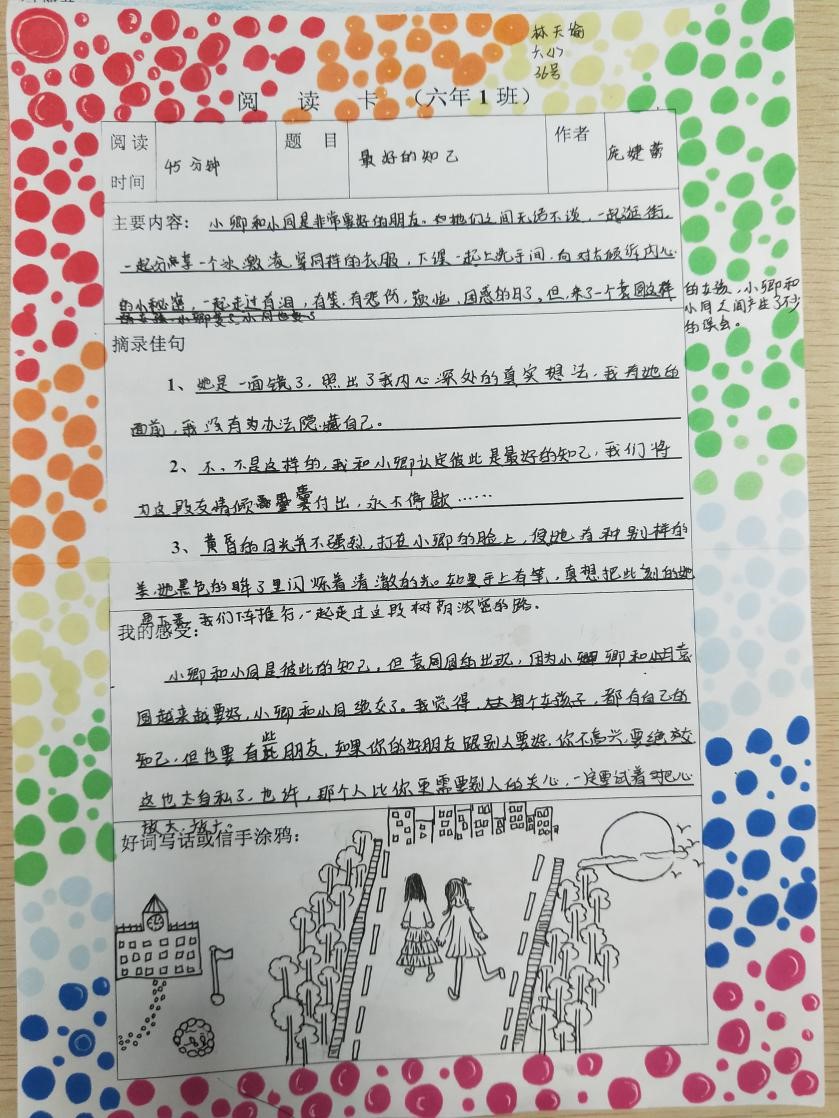 林天愉
六(1)
36号
阅 读 卡 （六年1班）
阅读时间 45分钟 题 目 最好的知己 作者 庞婕蕾
主要内容： 小卿和小同是非常要好的朋友。她们之间无话不谈，一起逛街，
一起分享一个冰激凌，穿同样的衣服，下课一起上洗手间，向对方倾诉内心
的小秘密，一起走过有泪，有笑，有悲伤，烦恼，困惑的日子。但，来了一个袁圆这样
的女孩，小卿和
小同之间产生了不少
的误会。
摘录佳句
1、她是一面镜子，照出了我内心深处的真实想法，我在她的
面前，我没有办法隐藏自己。
2、不，不是这样的，我和小卿认定彼此是最好的知己，我们将
为这段友情倾囊付出，永不停歇……
3、黄昏的日光并不强烈，打在小卿的脸上，使她有种别样的
美，她黑色的眸子里闪烁着清澈的光。如果手上有笔，真想把此刻的她
画下来。我们下车推行，一起走过这段树荫浓密的路。
我的感受：
小卿和小同是彼此的知己，但袁圆圆的出现，因为小卿和袁
圆越来越要好，小卿和小同绝交了。我觉得，每个女孩子，都有自己的
知己，但也要有些朋友，如果你的好朋友跟别人要好，你不高兴，要绝交
这也太自私了，也许，那个人比你更需要别人的关心，一定要试着把心
放大、放大。
好词写话或信手涂鸦：